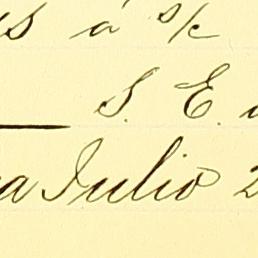 á s/c
S. E.
Julio 2